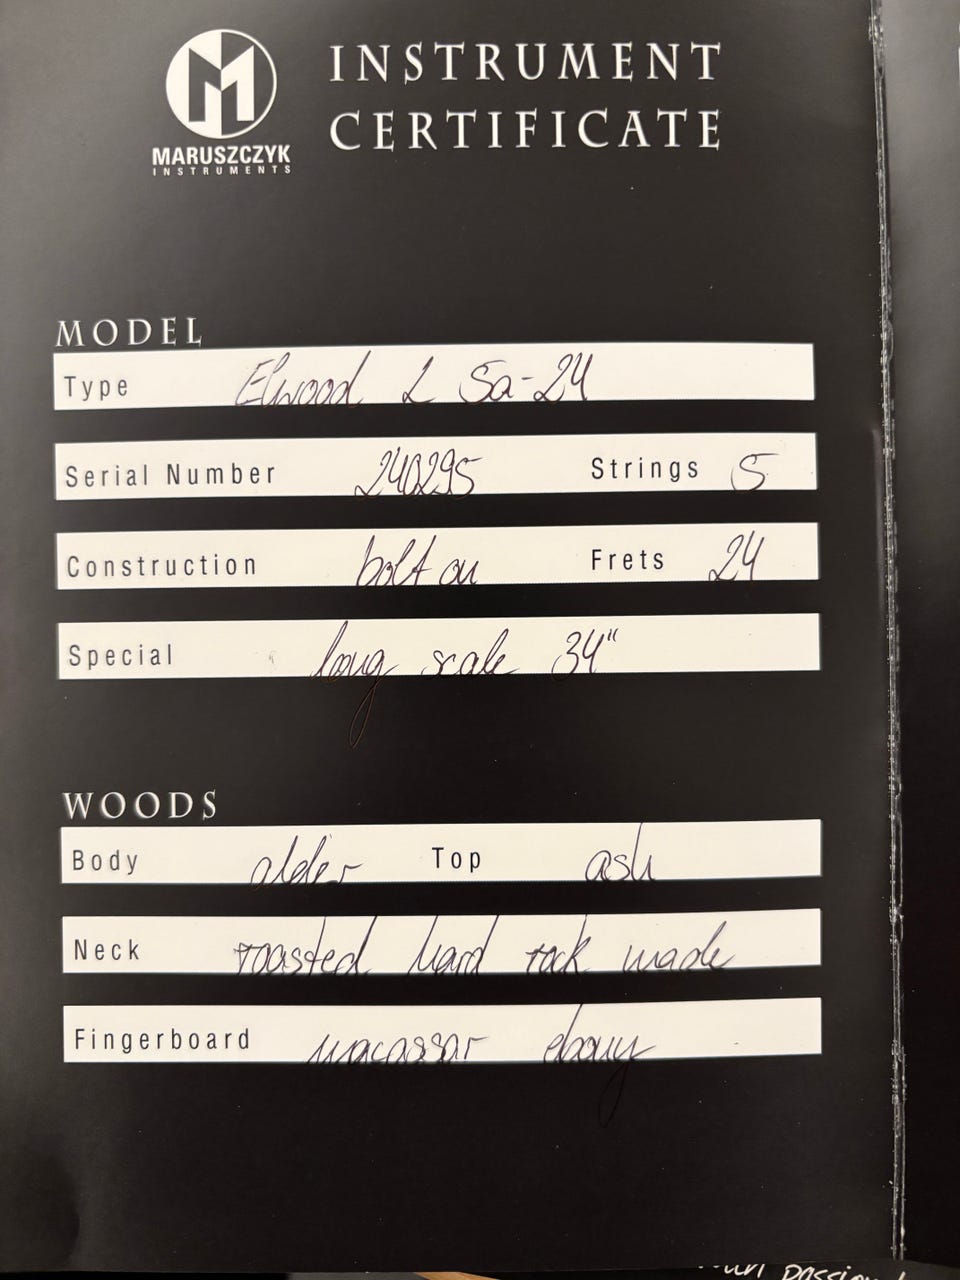 MARUSZCZYK
INSTRUMENTS
INSTRUMENT
CERTIFICATE
MODEL
Type Elwood L 5a-24
Serial Number 240295 Strings 5
Construction bolt on Frets 24
Special long scale 34"
WOODS
Body alder Top ash
Neck roasted hard rock made
Fingerboard macassar ebony